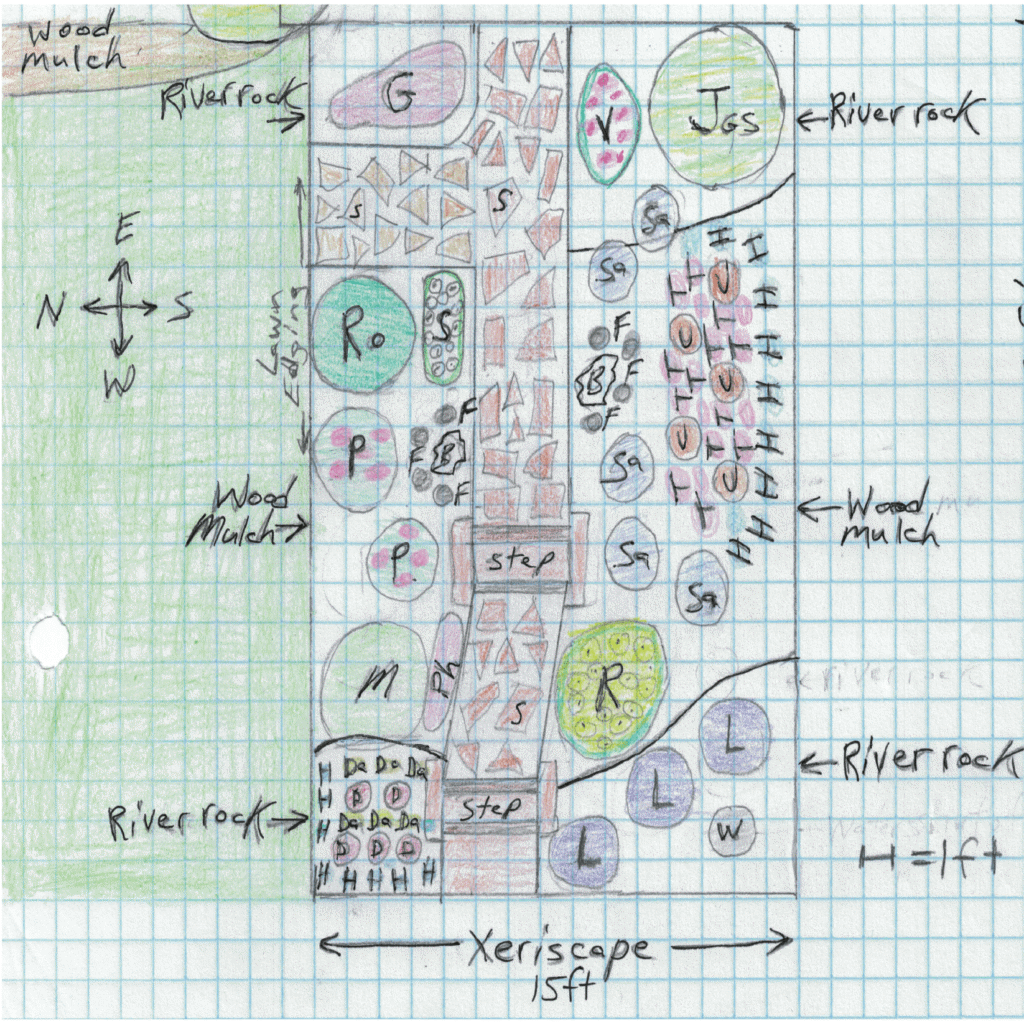 Wood
mulch
River rock
G
V
JGS
River rock
S
S
Sa
E
N
S
W
Sa
H
I
Lawn
Edging
Ro
S
T
U
H
T
T
H
F
F
U
T
T
H
B
F
T
U
H
F
T
T
P
F
F
B
F
Sa
U
T
T
H
T
U
H
Wood
Mulch
T
Wood
mulch
H
H
P
step
Sa
Sa
M
Ph
R
S
L
River rock
H
Da Da Da
H
D D
L
River rock
H
Da Da Da
step
W
D D D
L
H = 1ft
H H H H H
Xeriscape
15ft